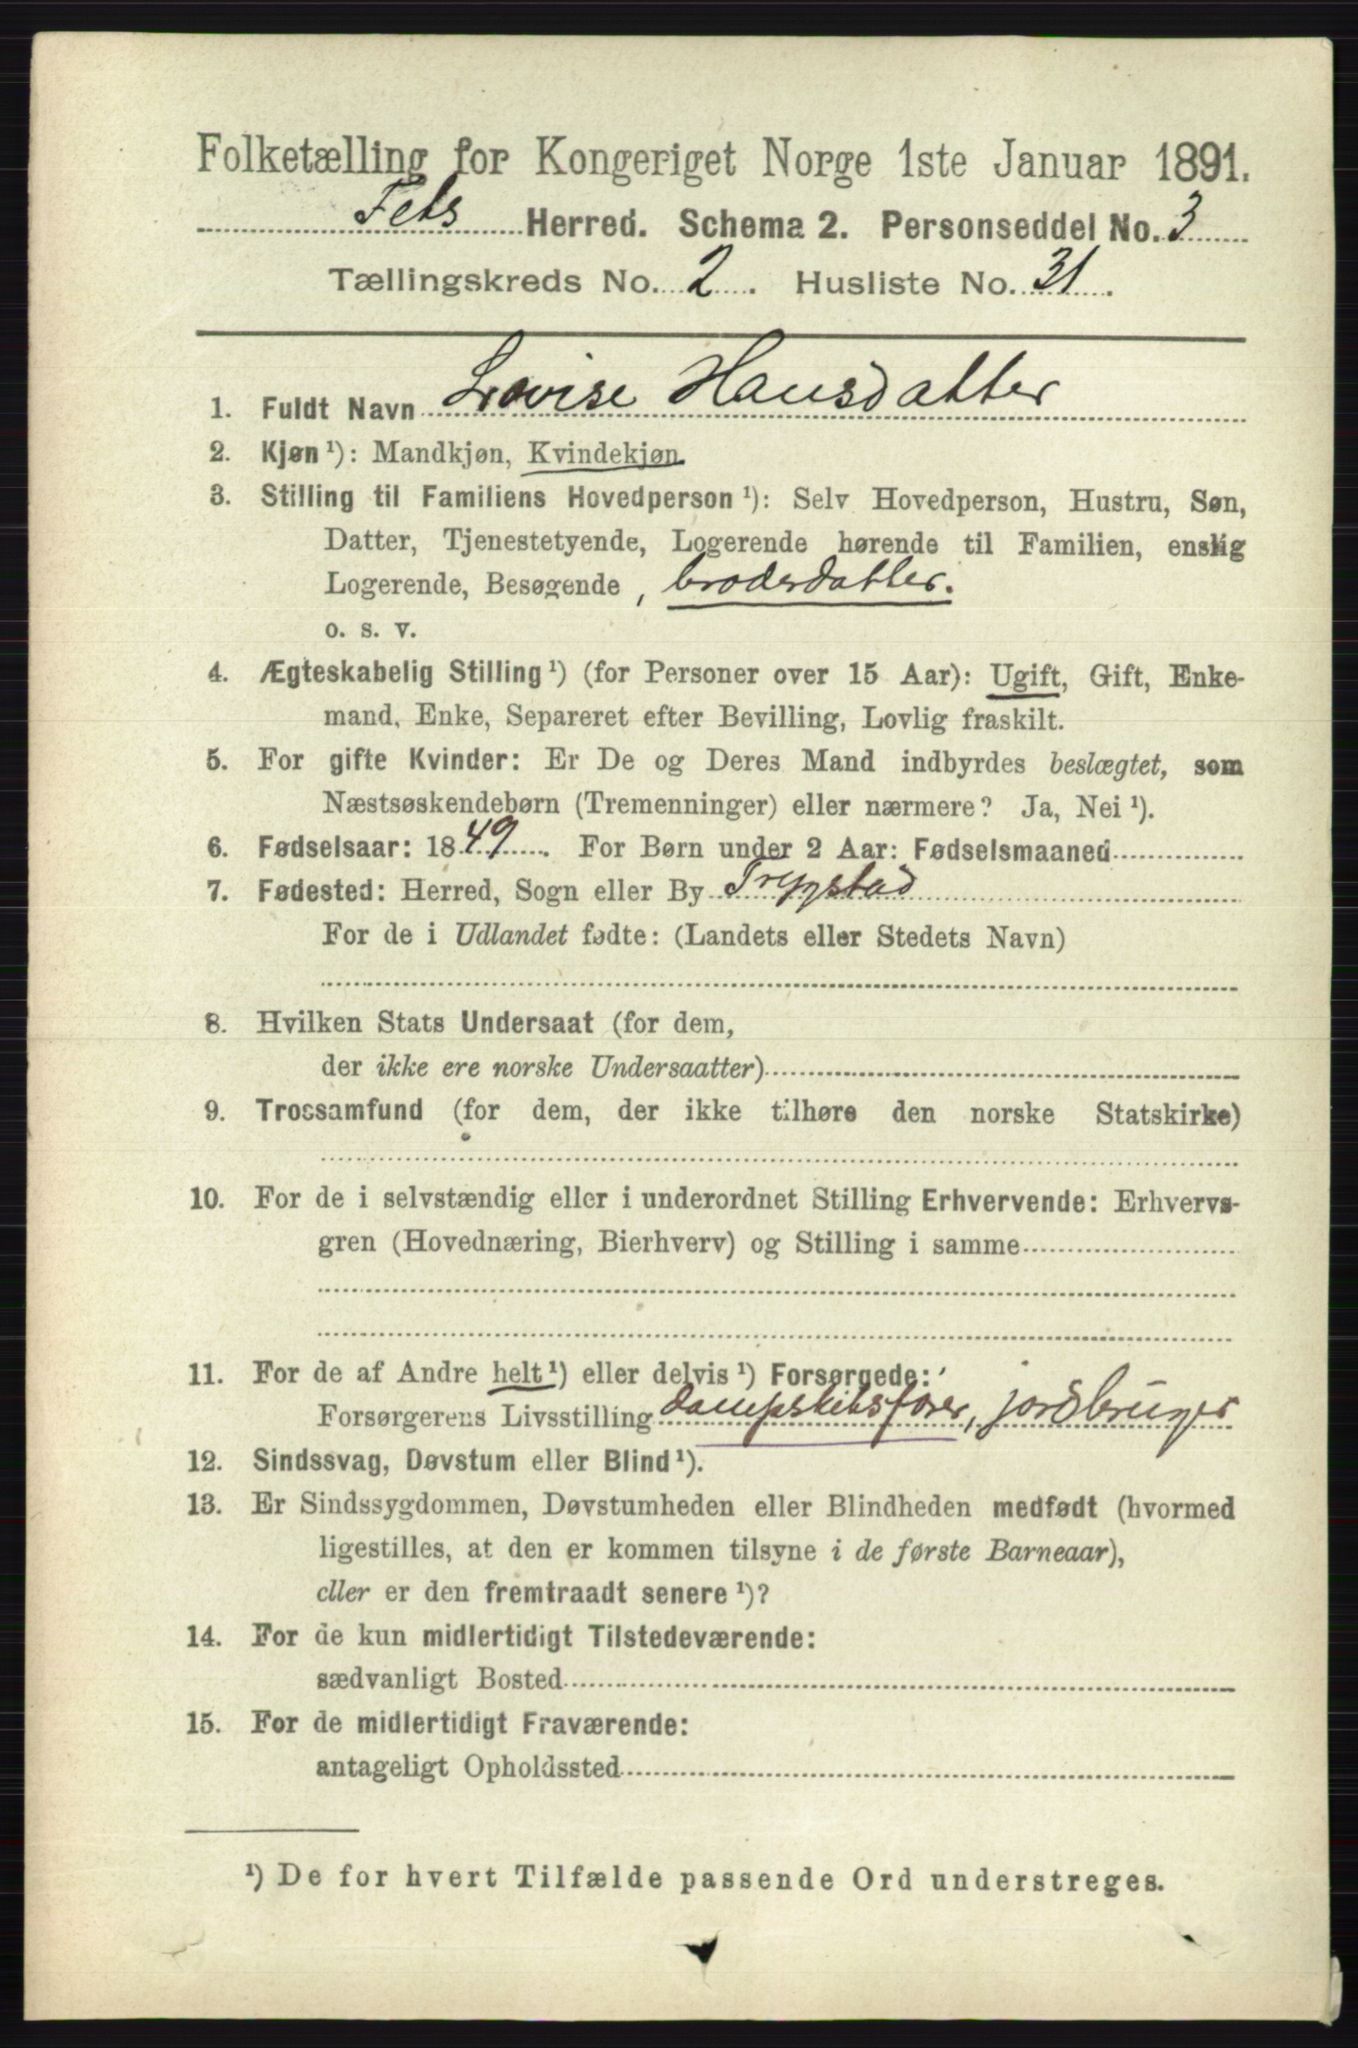 Folketælling for Kongeriget Norge 1ste Januar 1891.
Fets Herred. Schema 2. Personseddel No. 3
Tællingskreds No. 2. Husliste No. 31.
1. Fuldt Navn Lovise Hansdatter
2. Kjøn ¹): Mandkjøn, Kvindekjøn.
3. Stilling til Familiens Hovedperson ¹): Selv Hovedperson, Hustru, Søn,
Datter, Tjenestetyende, Logerende hørende til Familien, enslig
Logerende, Besøgende, broderdatter.
o. s. v.
4. Ægteskabelig Stilling ¹) (for Personer over 15 Aar): Ugift, Gift, Enke-
mand, Enke, Separeret efter Bevilling, Lovlig fraskilt.
5. For gifte Kvinder: Er De og Deres Mand indbyrdes beslægtet, som
Næstsøskendebørn (Tremenninger) eller nærmere? Ja, Nei ¹).
6. Fødselsaar: 1849. For Børn under 2 Aar: Fødselsmaaned
7. Fødested: Herred, Sogn eller By Trygstad
For de i Udlandet fødte: (Landets eller Stedets Navn)
8. Hvilken Stats Undersaat (for dem,
der ikke ere norske Undersaatter)
9. Trossamfund (for dem, der ikke tilhøre den norske Statskirke)
10. For de i selvstændig eller i underordnet Stilling Erhvervende: Erhvervs-
gren (Hovednæring, Bierhverv) og Stilling i samme
11. For de af Andre helt ¹) eller delvis ¹) Forsørgede:
Forsørgerens Livsstilling dampskibsfører, jordbruger
12. Sindssvag, Døvstum eller Blind ¹).
13. Er Sindssygdommen, Døvstumheden eller Blindheden medfødt (hvormed
ligestilles, at den er kommen tilsyne i de første Barneaar),
eller er den fremtraadt senere ¹)?
14. For de kun midlertidigt Tilstedeværende:
sædvanligt Bosted
15. For de midlertidigt Fraværende:
antageligt Opholdssted
¹) De for hvert Tilfælde passende Ord understreges.